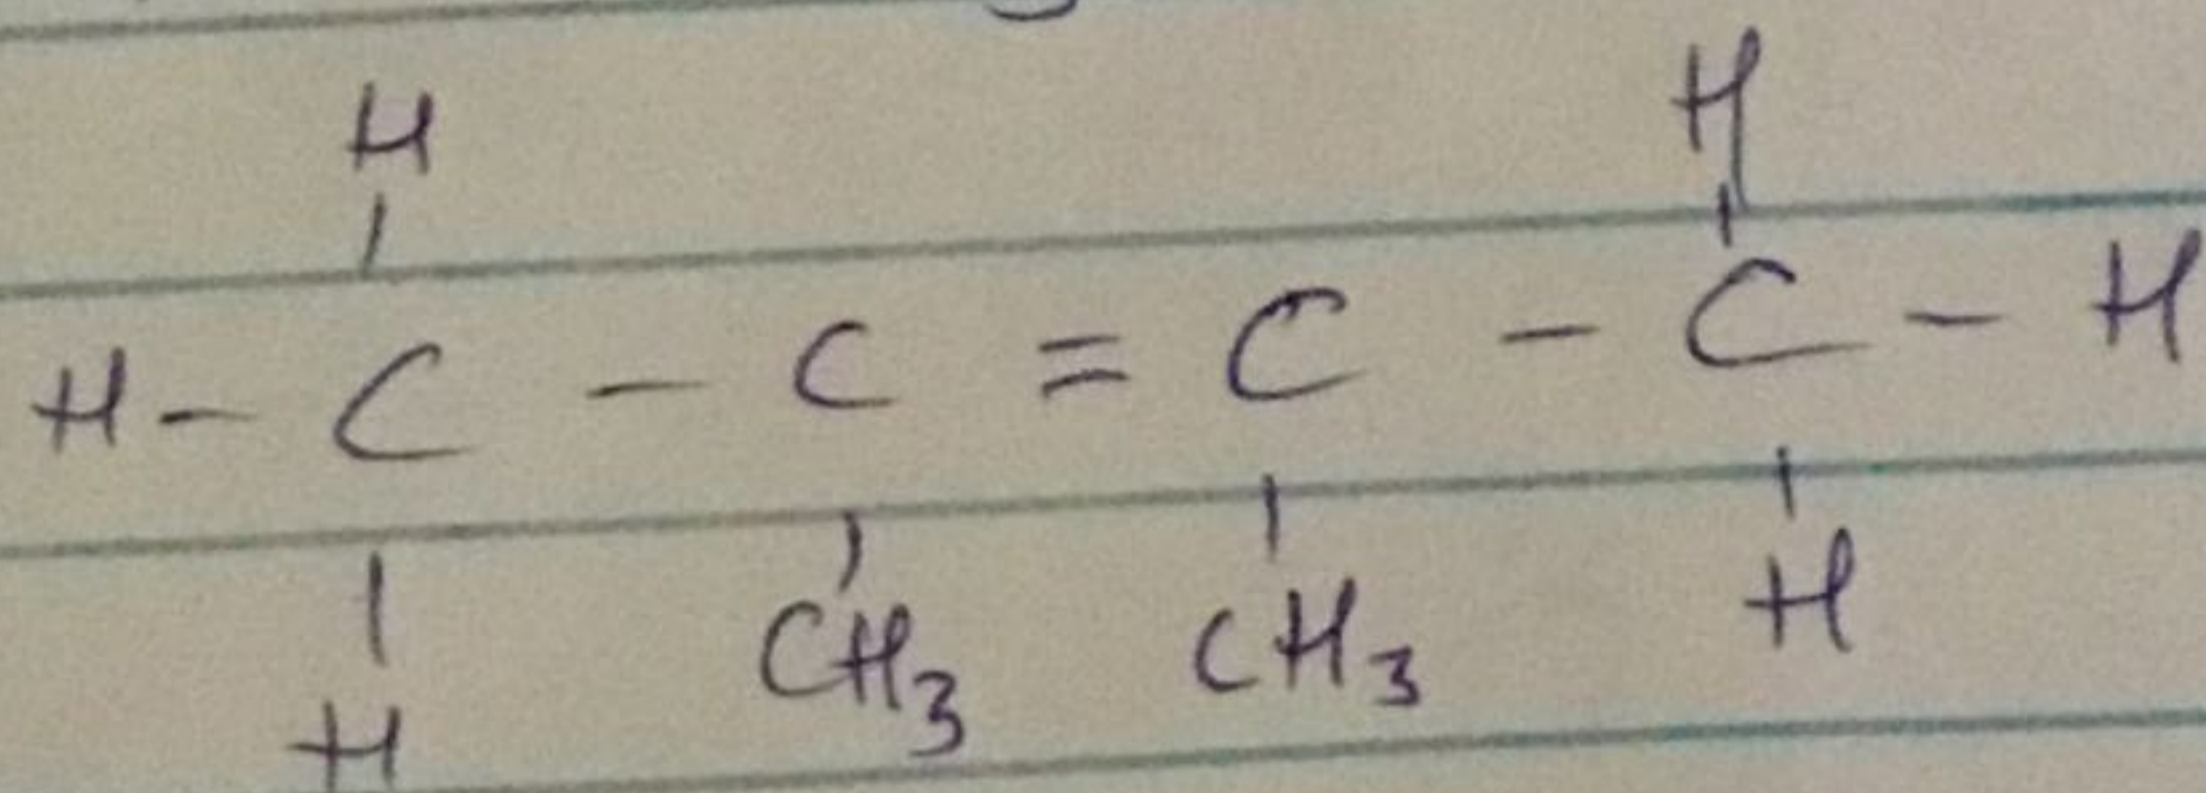 H H
H - C - C = C - C - H
CH3 CH3 H
H